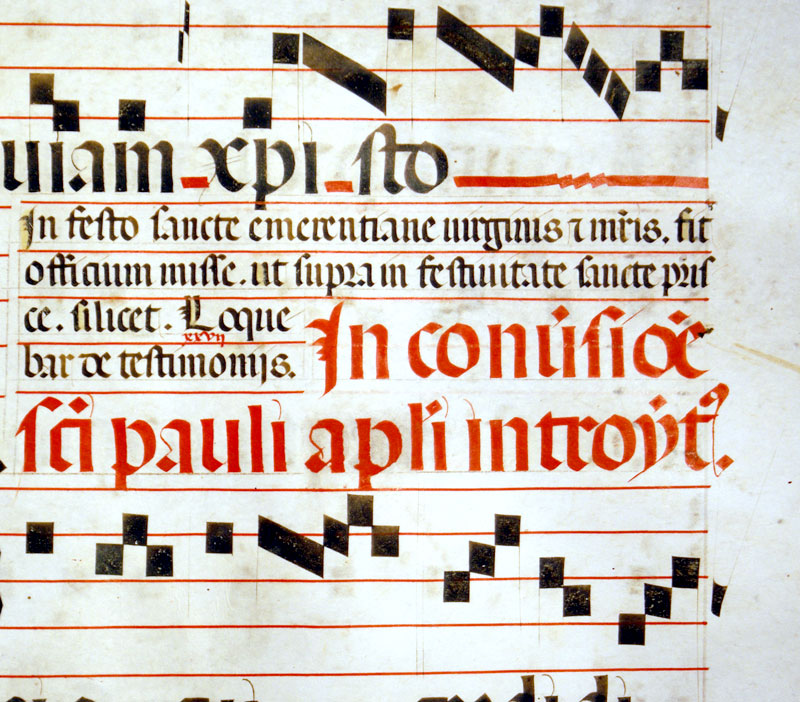 uiam xpisto
In festo sancte emerentiane uirginis ⁊ mr̄is. fit
officium misse. ut supra in festiuitate sancte pris
ce. silicet. Loque
xxvij
bar de testimonijs. In conūsiōe
sc̄i pauli apl̄i introyt⁹.